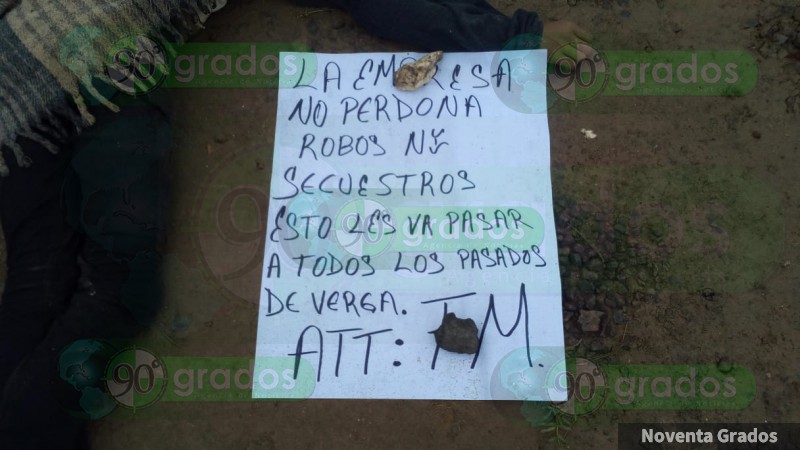 LA EMPRESA
NO PERDONA
ROBOS NI
SECUESTROS
ESTO LES VA PASAR
A TODOS LOS PASADOS
DE VERGA.
ATT: FM.
90° grados
90° grados
90° grados
90° grados
90° grados
Noventa Grados